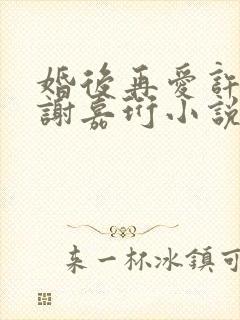 婚後再愛許
謝嘉珩小說
来一杯冰鎮可